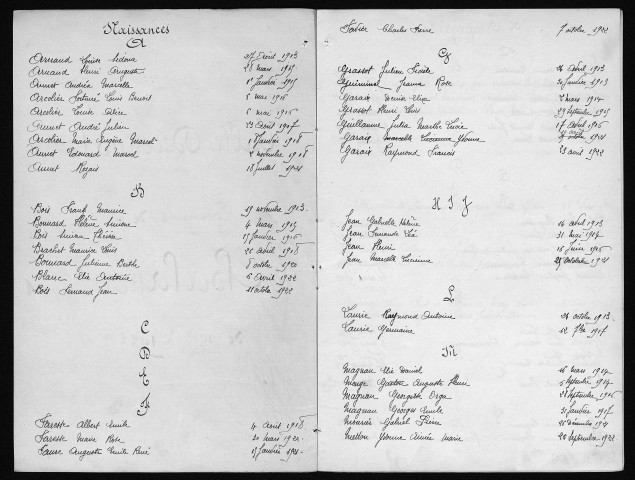 Naissances
A
Armand Louise 27 Avril 1913
Armand Henri Auguste 28 mars 1915
Aunet Andréa Marcelle 1er Janvier 1915
Arcolier Fortuné Louis Benoit 5 mai 1916
Arcolier Louise 5 mai 1916
Aunet André Julien 23 Avril 1917
Arcolier Marie Eugène Marcel 1er Janvier 1918
Aunet Edouard Marcel 2 novembre 1918
Aunet Roger 18 Juillet 1921
B
Bois Frank Maurice 19 novembre 1913
Bonnard Hélène Simone 4 mars 1915
Bois Thérèse 17 Janvier 1916
Brachet Maurice Louis 20 avril 1918
Bonnard Julienne Berthe 8 octobre 1920
Blanc Elie Antoine 6 Avril 1922
Bois Fernand Jean 11 octobre 1922
C
D
E
F
Faresse Albert Emile 4 avril 1918
Faresse Marie Rose 20 mars 1920
Faure Auguste Emile René 17 Janvier 1921
Favier Charles Pierre 7 octobre 1922
G
Grasset Julien 26 Avril 1913
Guiminel Jeanne Rose 30 Janvier 1913
Garaix Denise Elise 2 mars 1914
Grasset Henri Louis 29 Septembre 1915
Guillaume Julia Marthe Lucie 17 Avril 1916
Garaix Lucienne Yvonne 1921
Garaix Raymond Francis 23 avril 1922
H I J
Jean Gabrielle Hélène 16 avril 1913
Jean Fernande 31 mai 1914
Jean Henri 15 Juin 1916
Jean Marcelle Lucienne 29 Octobre 1921
L
Laurie Raymond Antoine 24 octobre 1913
Laurie Germaine 12 7bre 1917
M
Magnan Elie Daniel 16 mars 1914
Monge Gaston Auguste Henri 5 Septembre 1914
Magnan Georgette Olga 28 Septembre 1916
Magnan Georges Emile 31 Janvier 1917
Mourrès Gabriel Pierre 25 Décembre 1921
Mellon Yvonne Aimée Marie 20 Septembre 1922